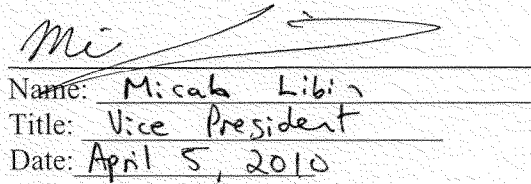 Mi
Name: Micah Libin
Title: Vice President
Date: April 5, 2010